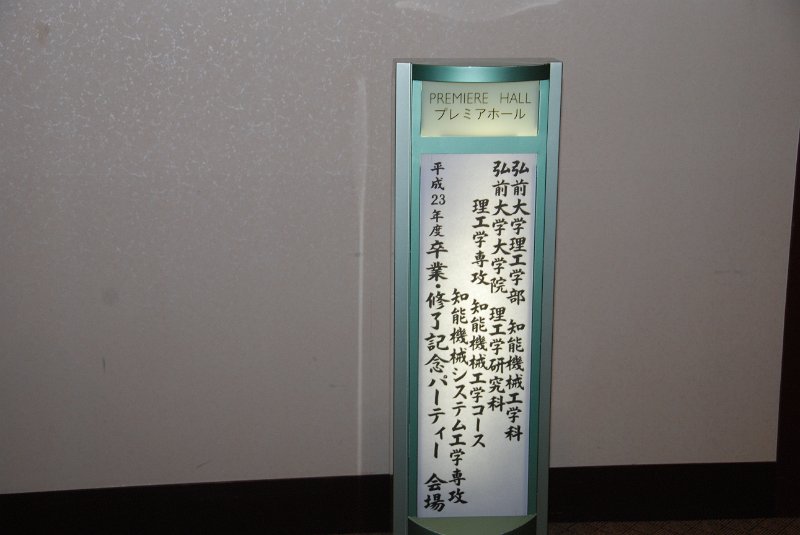 PREMIERE HALL
プレミアホール
弘前大学理工学部 知能機械工学科
弘前大学大学院 理工学研究科
理工学専攻 知能機械工学コース
知能機械システム工学専攻
平成23年度 卒業・修了記念パーティー 会場